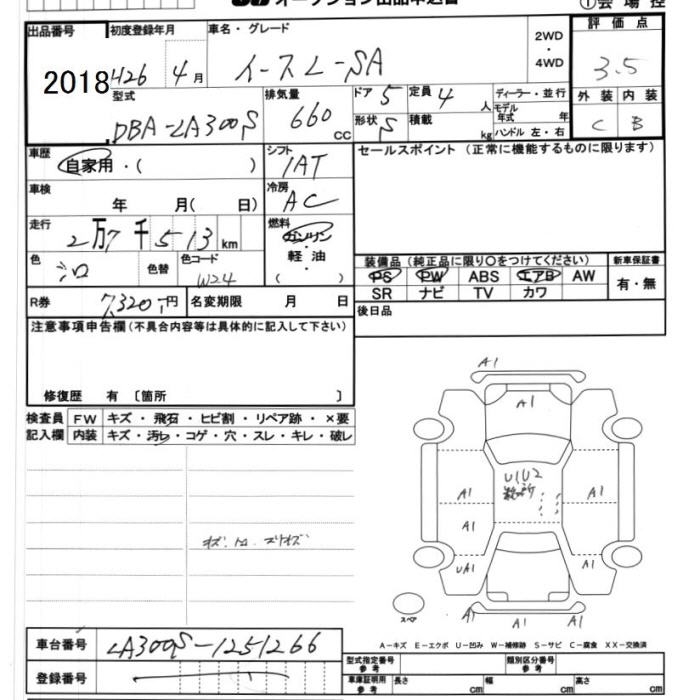 オークション出品申込書
①会場控
出品番号 初度登録年月 車名・グレード 2WD・4WD 評価点
2018 H26 4月 イースL-SA 3.5
型式 排気量 ドア 5 定員 4人 ディーラー・並行 外装 内装
DBA-LA300S 660cc 形状 S 積載 kg モデル年式 年 ハンドル 左・右 C B
車歴 シフト セールスポイント (正常に機能するものに限ります)
自家用・( ) IAT
車検 冷房
年 月( 日) AC
走行 燃料
2万7千513km ガソリン・軽油・( )
色 色替 色コード 装備品 (純正品に限り〇をつけてください) 新車保証書
シロ W24 PS PW ABS エアB AW 有・無
SR ナビ TV カワ
R券 7,320-円 名変期限 月 日 後日品
注意事項申告欄(不具合内容等は具体的に記入して下さい)
修復歴 有 〔箇所 〕
検査員 FW キズ・飛石・ヒビ割・リペア跡・×要
記入欄 内装 キズ・汚レ・コゲ・穴・スレ・キレ・破レ
A1
A1
U1U2
A1 A1
A1
UA1 A1
スペア
A1 A1 A1
A-キズ E-エクボ U-凹み W-補修跡 S-サビ C-腐食 XX-交換済
車台番号 LA300S-1251266
登録番号
型式指定番号 参考 類別区分番号 参考
車庫証明用 参考 長さ cm 幅 cm 高さ cm